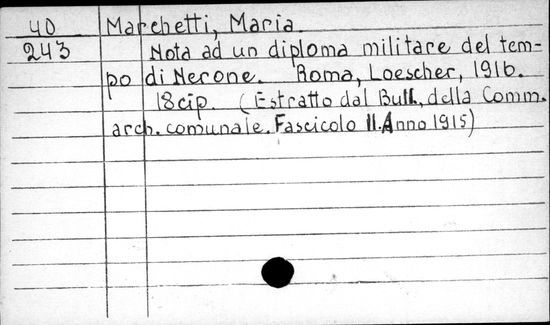 40 Marchetti, Maria.
243 Nota ad un diploma militare del tem-
po di Nerone. Roma, Loescher, 1916.
18cip. (Estratto dal Bull. della Comm.
arch. comunale. Fascicolo II. Anno 1915)